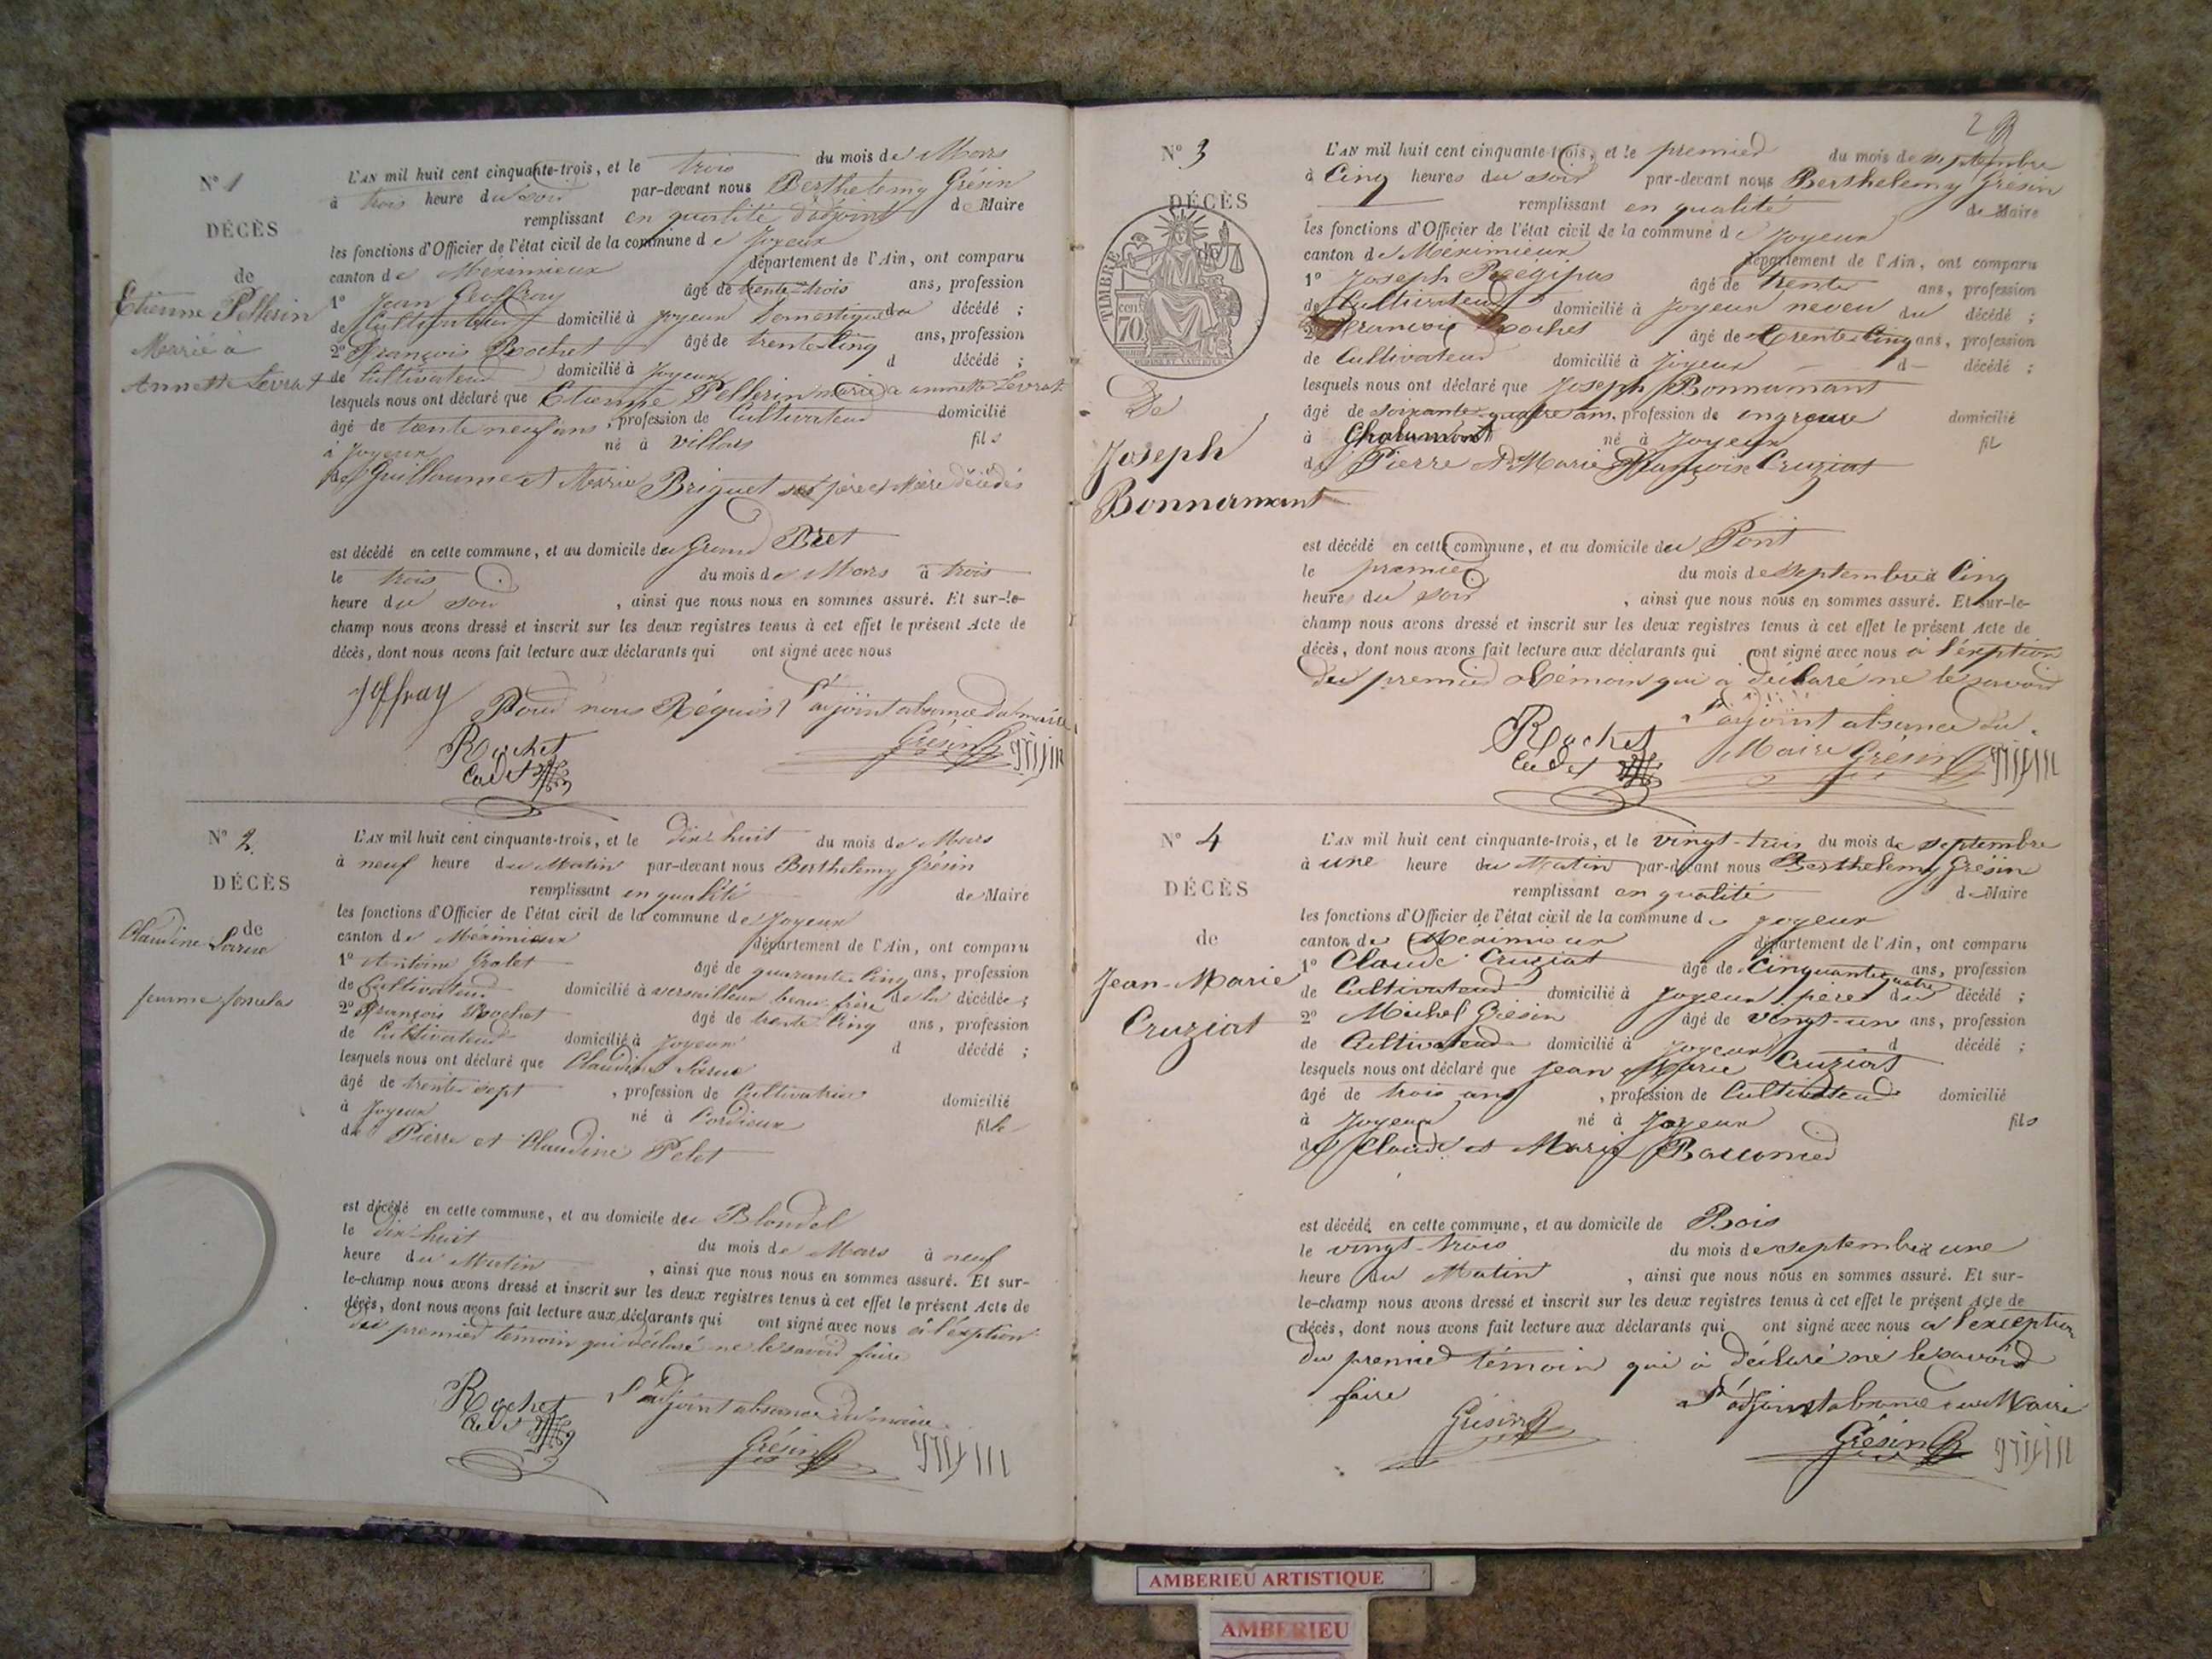 N° 1
DÉCÈS
de
Etienne Pellerin
Marié à
Annette Levrat
L'AN mil huit cent cinquante-trois, et le trois du mois de Mars
à trois heure du soir par-devant nous Berthelemy Grésin
remplissant en qualité d'adjoint de Maire
les fonctions d'Officier de l'état civil de la commune de Joyeux
canton de Méximieux département de l'Ain, ont comparu
1° Jean Geoffray âgé de trente-trois ans, profession
de Cultivateur domicilié à Joyeux Domestique du décédé ;
2° François Rochet âgé de trente Cinq ans, profession
de Cultivateur domicilié à Joyeux d décédé ;
lesquels nous ont déclaré que Etienne Pellerin marié a annette Levrat
âgé de trente neuf ans, profession de Cultivateur domicilié
à Joyeux né à Villars fils
de Guillaume et Marie Briguet ses père et Mère décédés
est décédé en cette commune, et au domicile du Grand Bret
le trois du mois de Mars à trois
heure du soir , ainsi que nous nous en sommes assuré. Et sur-le-
champ nous avons dressé et inscrit sur les deux registres tenus à cet effet le présent Acte de
décès, dont nous avons fait lecture aux déclarants qui ont signé avec nous
Joffray Pour nous Réquis l'adjoint absance du maire
Rochet Grésin
Cadet
N° 2.
DÉCÈS
de
Claudine Larue
femme
L'AN mil huit cent cinquante-trois, et le dix huit du mois de Mars
à neuf heure du Matin par-devant nous Berthelemy Grésin
remplissant en qualité de Maire
les fonctions d'Officier de l'état civil de la commune de Joyeux
canton de Méximieux département de l'Ain, ont comparu
1° Antoine Grolet âgé de quarante Cinq ans, profession
de Cultivateur domicilié à versailleux beau frère de la décédée ;
2° François Rochet âgé de trente Cinq ans, profession
de Cultivateur domicilié à Joyeux d décédé ;
lesquels nous ont déclaré que Claudine Larue
âgé de trente sept , profession de Cultivatrice domicilié
à Joyeux né à Cordieux fille
de Pierre et Claudine Pelet
est décédé en cette commune, et au domicile du Blondel
le dix huit du mois de Mars à neuf
heure du Matin , ainsi que nous nous en sommes assuré. Et sur-
le-champ nous avons dressé et inscrit sur les deux registres tenus à cet effet le présent Acte de
décès, dont nous avons fait lecture aux déclarants qui ont signé avec nous à l'exption
du premier témoin qui déclaré ne le savoir faire
Rochet l'adjoint absance du maire
Cadet Grésin
2
N° 3
DÉCÈS
de
TIMBRE
70 cen
De
Joseph
Bonnamant
L'AN mil huit cent cinquante-trois, et le premier du mois de septembre
à Cinq heures du soir par-devant nous Berthelemy Grésin
remplissant en qualité de Maire
les fonctions d'Officier de l'état civil de la commune de Joyeux
canton de Méximieux département de l'Ain, ont comparu
1° Joseph âgé de trente ans, profession
de Cultivateur domicilié à Joyeux neveu du décédé ;
2° François Rochet âgé de trente Cinq ans, profession
de Cultivateur domicilié à Joyeux d décédé ;
lesquels nous ont déclaré que Joseph Bonnamant
âgé de soixante-quatre ans, profession de domicilié
à Chalamont né à Joyeux fil
de Pierre et Marie Françoise Cruziat
est décédé en cette commune, et au domicile du Pont
le premier du mois de septembre à Cinq
heures du soir , ainsi que nous nous en sommes assuré. Et sur-le-
champ nous avons dressé et inscrit sur les deux registres tenus à cet effet le présent Acte de
décès, dont nous avons fait lecture aux déclarants qui ont signé avec nous à l'exption
du premier témoin qui a déclaré ne le savoir
Rochet l'adjoint absance du
Cadet Maire Grésin
N° 4
DÉCÈS
de
Jean-Marie
Cruziat
L'AN mil huit cent cinquante-trois, et le vingt-trois du mois de septembre
à une heure du Matin par-devant nous Berthelemy Grésin
remplissant en qualité de Maire
les fonctions d'Officier de l'état civil de la commune de Joyeux
canton de Méximieux département de l'Ain, ont comparu
1° Claude Cruziat âgé de Cinquante quatre ans, profession
de Cultivateur domicilié à Joyeux père du décédé ;
2° Michel Grésin âgé de vingt-un ans, profession
de Cultivateur domicilié à Joyeux d décédé ;
lesquels nous ont déclaré que Jean Marie Cruziat
âgé de trois ans , profession de Cultivateur domicilié
à Joyeux né à Joyeux fils
de Claude et Marie
est décédé en cette commune, et au domicile de Bois
le vingt-trois du mois de septembre à une
heure du Matin , ainsi que nous nous en sommes assuré. Et sur-
le-champ nous avons dressé et inscrit sur les deux registres tenus à cet effet le présent Acte de
décès, dont nous avons fait lecture aux déclarants qui ont signé avec nous a l'exception
du premier témoin qui à déclaré ne le savoir
faire l'adjoint absance du Maire
Grésin Grésin
AMBERIEU ARTISTIQUE
AMBERIEU